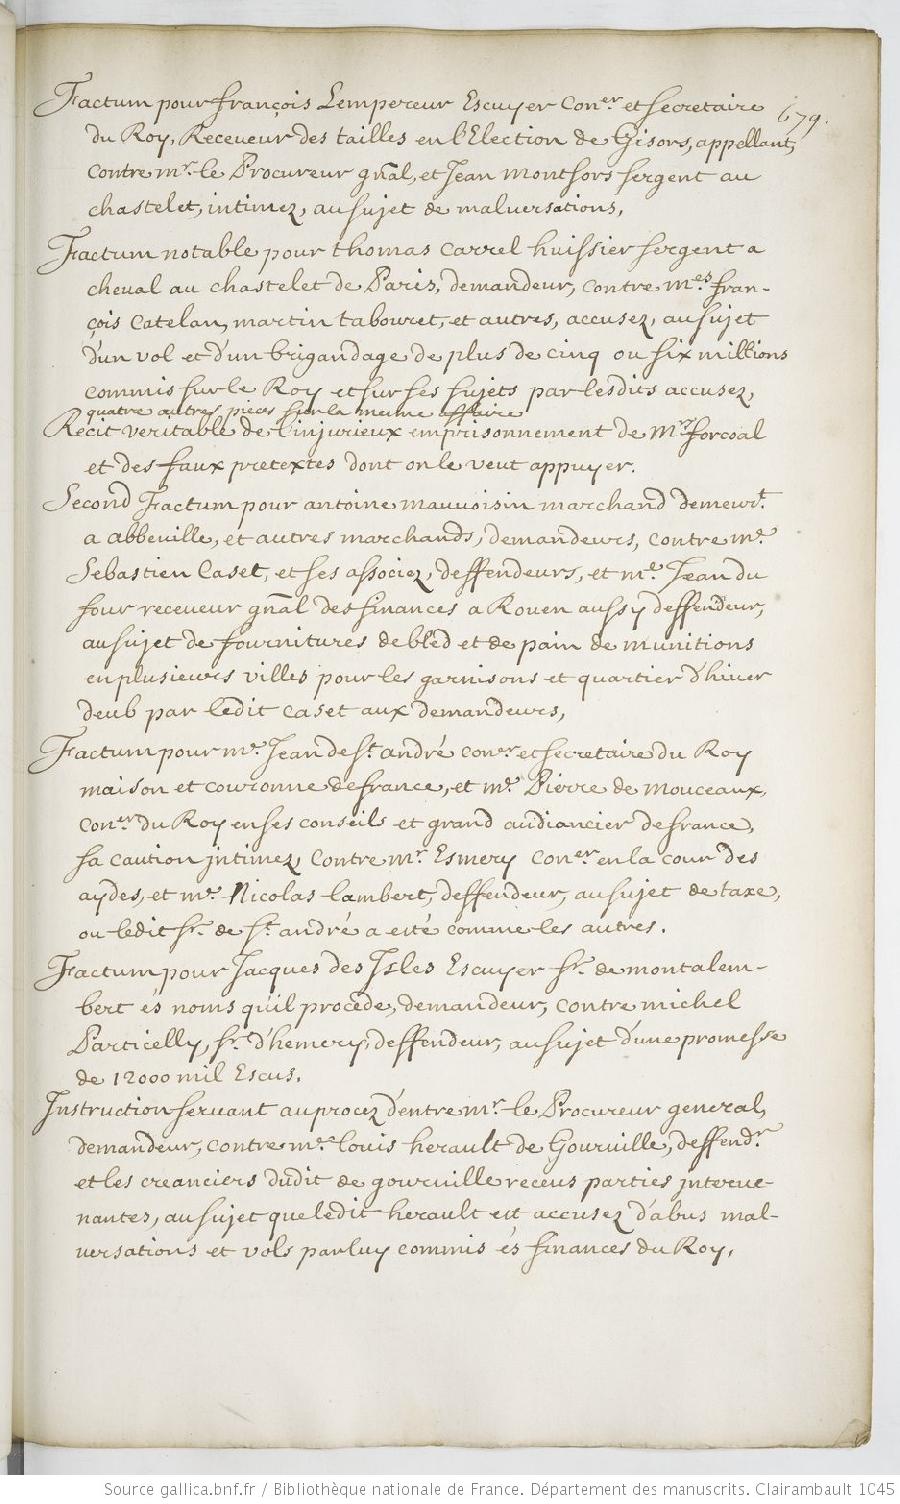 Factum pour françois Lempereur Escuyer Con.er et secretaire
679.
du Roy, Receveur des tailles en l'Election de Gisors, appellant,
contre mr. le Procureur gnãl, et Jean montsors sergent au
chastelet, intimez, au sujet de malversations,
Factum notable pour thomas Carrel huissier sergent a
cheval au chastelet de Paris, demandeur, contre m.es fran-
çois Catelan, martin tabouret, et autres, accusez, au sujet
d'un vol et d'un brigandage de plus de cinq ou six millions
commis sur le Roy et sur ses sujets par lesdits accusez,
quatre autres pieces sur la mesme affaire
Récit veritable de l'injurieux emprisonnement de Mr. forcoal
et des faux pretextes dont on le veut appuyer.
Second Factum pour antoine mauvoisin marchand demeurt.
a abbeville, et autres marchands, demandeurs, contre me.
Sebastien Caset, et ses associez, deffendeurs, et me. Jean du
four receveur gnãl des finances a Rouen aussy deffendeur,
au sujet de fournitures de bled et de pain de munitions
en plusieurs villes pour les garnisons et quartier d'hiver
deub par ledit Caset aux demandeurs,
Factum pour me. Jean de St. andré con.er et secretaire du Roy
maison et couronne de france, et me. Pierre de mouceaux,
Con.er du Roy en ses conseils et grand audiancier de france,
sa caution jntimez, Contre mr. Esmery Con.er en la cour des
aydes, et me. Nicolas lambert, deffendeur, au sujet de taxe,
ou ledit sr. de St. andré a esté comme les autres.
Factum pour Jacques des Jsles Escuyer sr. de montalem-
bert és noms qu'il procéde, demandeur, contre michel
Particelly, sr. d'hemery, deffendeur, au sujet d'une promesse
de 12000 mil Escus.
Jnstruction servant au procez d'entre mr. le Procureur general,
demandeur, contre me. louis herault de Gourville, deffendr.
et les creanciers dudit de gourville receus parties jnterve-
nantes, au sujet que ledit herault est accusez d'abus mal-
versations et vols par luy commis és finances du Roy,
Source gallica.bnf.fr / Bibliothèque nationale de France. Département des manuscrits. Clairambault 1045